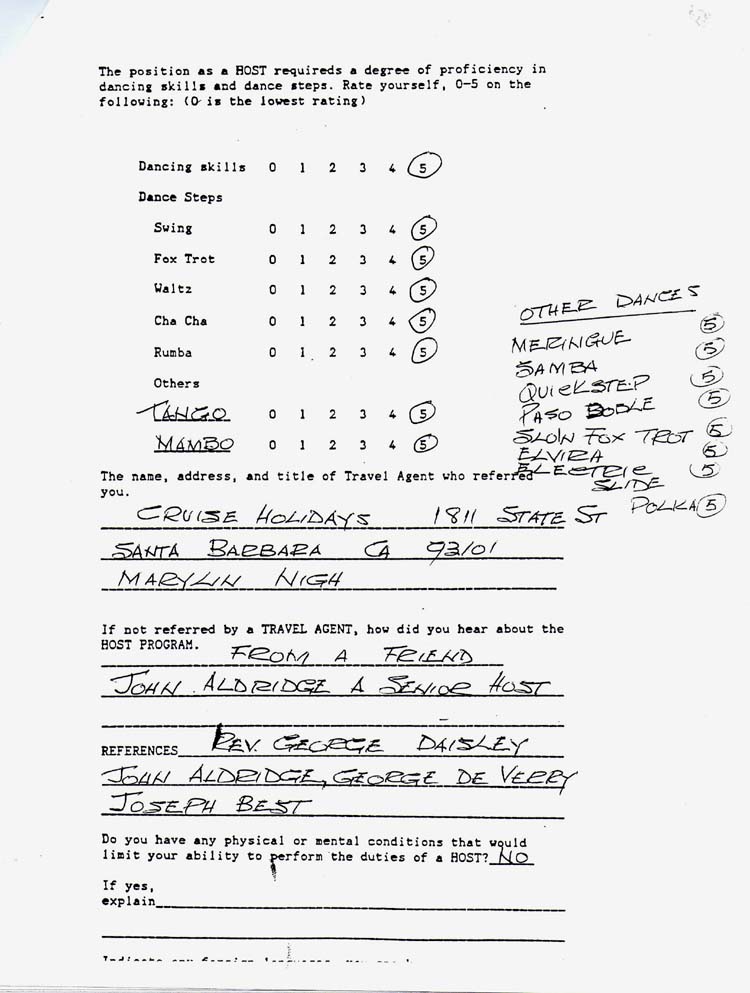 The position as a HOST requireds a degree of proficiency in
dancing skills and dance steps. Rate yourself, 0-5 on the
following: (0 is the lowest rating)
Dancing skills 0 1 2 3 4 5
Dance Steps
Swing 0 1 2 3 4 5
Fox Trot 0 1 2 3 4 5
Waltz 0 1 2 3 4 5
Cha Cha 0 1 2 3 4 5
Rumba 0 1 2 3 4 5
Others
TANGO 0 1 2 3 4 5
MAMBO 0 1 2 3 4 5
OTHER DANCES
MERINGUE 5
SAMBA 5
QUICKSTEP 5
PASO DODLE 5
SLOW FOX TROT 5
ELVIRA 5
ELECTRIC 5
SLIDE
POLKA 5
The name, address, and title of Travel Agent who referred
you.
CRUISE HOLIDAYS 1811 STATE ST
SANTA BARBARA CA 93101
MARYLIN NIGH
If not referred by a TRAVEL AGENT, how did you hear about the
HOST PROGRAM.
FROM A FRIEND
JOHN ALDRIDGE A SENIOR HOST
REFERENCES REV. GEORGE DAISLEY
JOHN ALDRIDGE, GEORGE DE VERRY
JOSEPH BEST
Do you have any physical or mental conditions that would
limit your ability to perform the duties of a HOST? NO
If yes,
explain